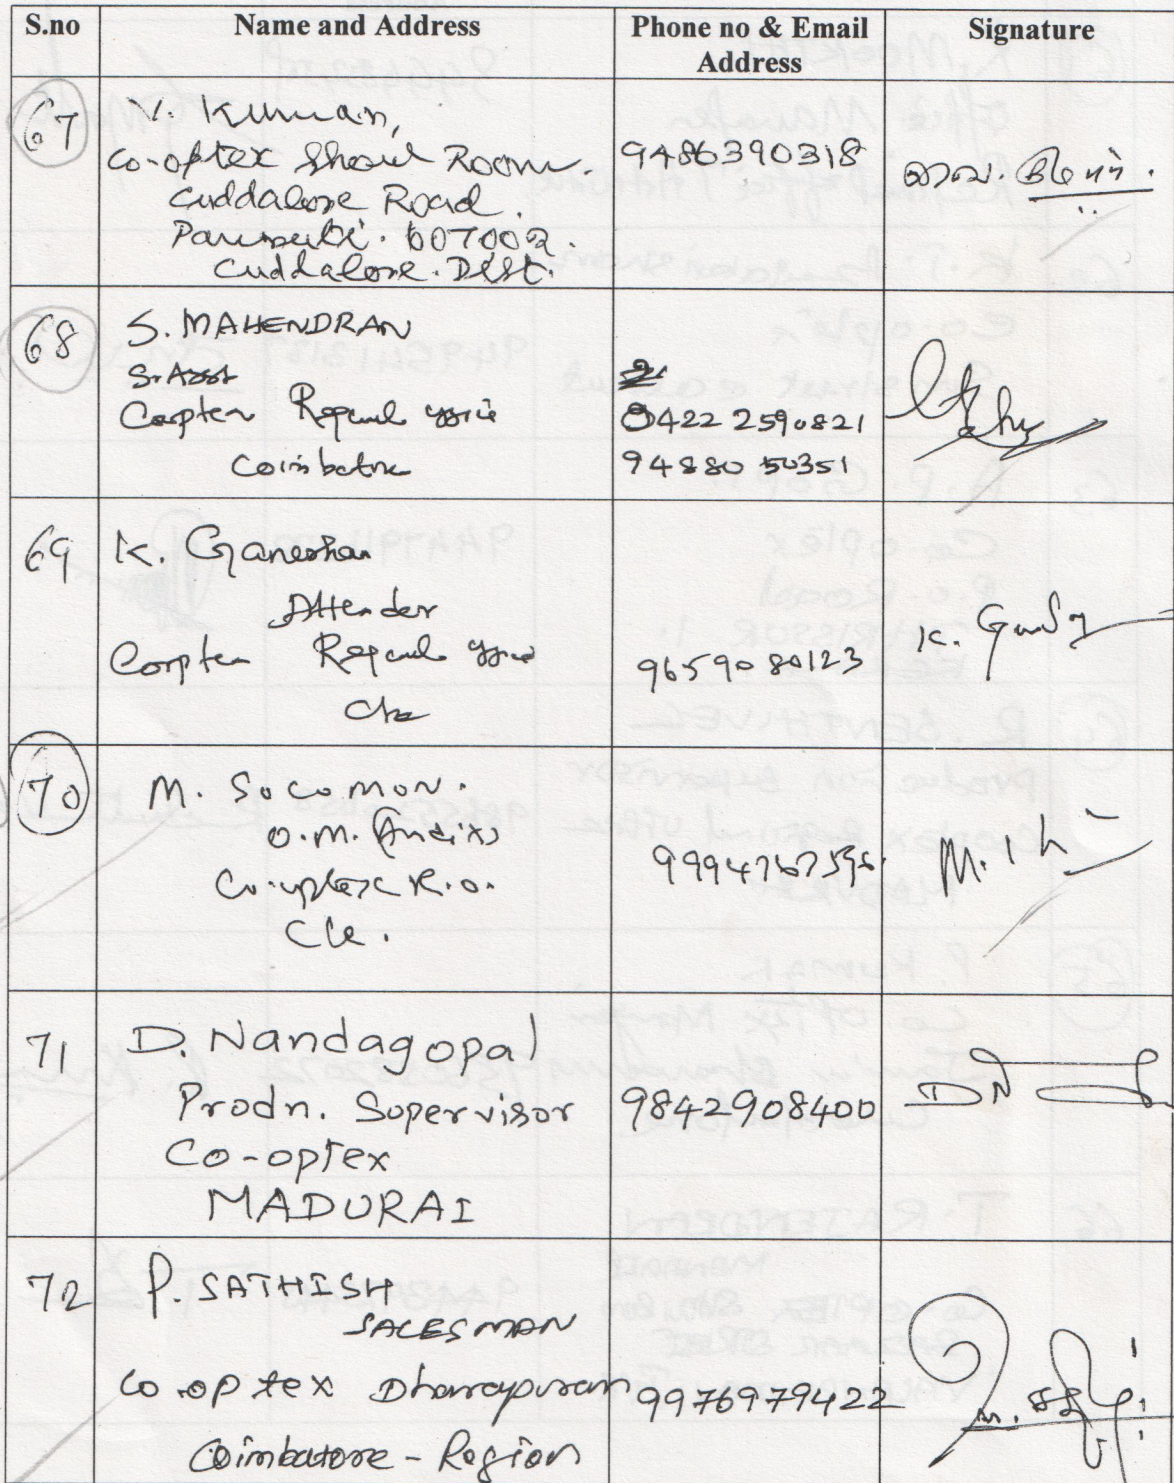 S.no Name and Address Phone no & Email Address Signature
67 V. Kumar,
Co-optex Show Room.
Cuddalore Road.
Panruti. 607002.
Cuddalore. Dist.
9486390318
68 S. MAHENDRAN
Sr Asst
Cooptex Regional Office
Coimbatore
0422 2590821
94880 50351
69 K. Ganeshan
Attender
Cooptex Regional Office
Cbe
96590 80123
K.
70 M. Solomon.
O.M.
Co-optex R.O.
Cbe.
9994767596.
M.
71 D. Nandagopal
Prodn. Supervisor
Co-optex
MADURAI
9842908400
DN
72 P. SATHISH
SALESMAN
Co.optex Dharapuram
Coimbatore - Region
9976979422